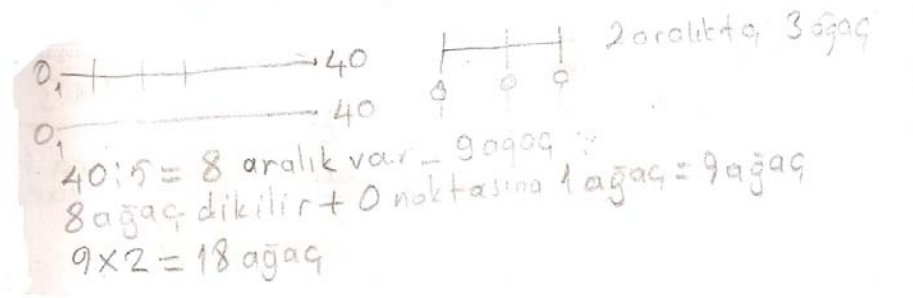 0 40
1
2 aralıkta 3 ağaç
0 40
1
40:5 = 8 aralık var - 9 ağaç
8 ağaç dikilir + 0 noktasına 1 ağaç = 9 ağaç
9x2 = 18 ağaç